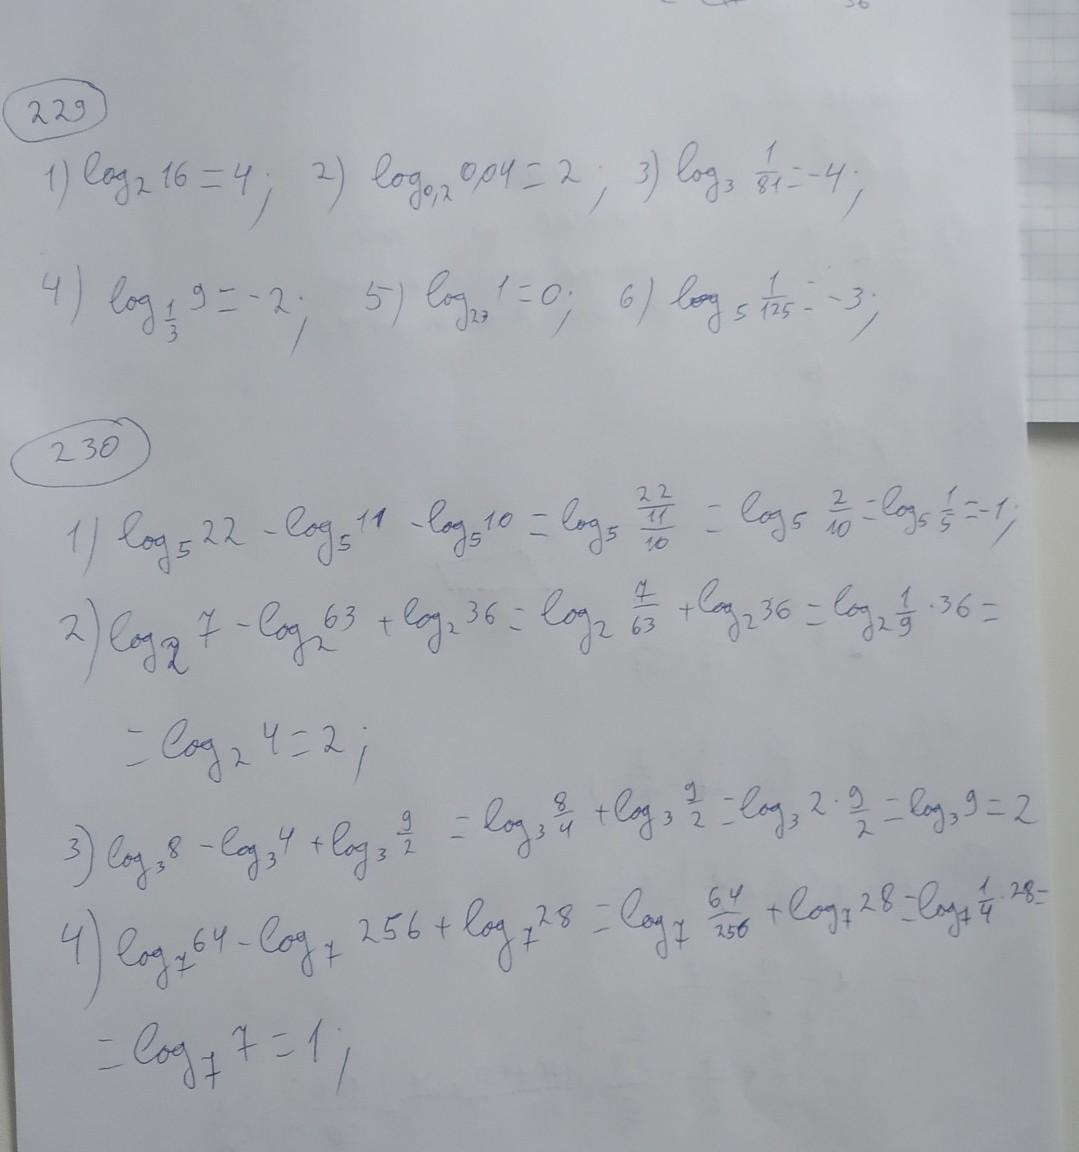 229
1) log₂ 16 = 4; 2) log₀,₂ 0,04 = 2; 3) log₃ 1/81 = -4;
4) log₁/₃ 9 = -2; 5) log₂₇ 1 = 0; 6) log₅ 1/125 = -3;
230
1) log₅ 22 - log₅ 11 - log₅ 10 = log₅ 22/11/10 = log₅ 2/10 = log₅ 1/5 = -1;
2) log₂ 7 - log₂ 63 + log₂ 36 = log₂ 7/63 + log₂ 36 = log₂ 1/9 · 36 =
= log₂ 4 = 2;
3) log₃ 8 - log₃ 4 + log₃ 9/2 = log₃ 8/4 + log₃ 9/2 = log₃ 2 · 9/2 = log₃ 9 = 2
4) log₇ 64 - log₇ 256 + log₇ 28 = log₇ 64/256 + log₇ 28 = log₇ 1/4 · 28 =
= log₇ 7 = 1;